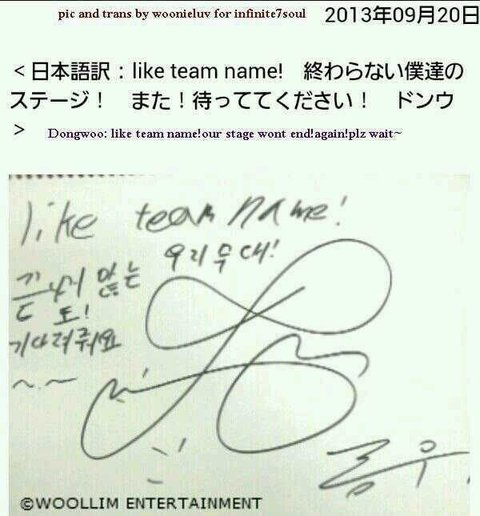 pic and trans by woonieluv for infinite7soul
2013年09月20日
<日本語訳：like team name!　終わらない僕達の
ステージ！　また！待っててください！　ドンウ
>
Dongwoo: like team name!our stage wont end!again!plz wait~
like team name!
끝나지 않는 우리무대!
또!
기다려줘요
~.~
동우
©WOOLLIM ENTERTAINMENT